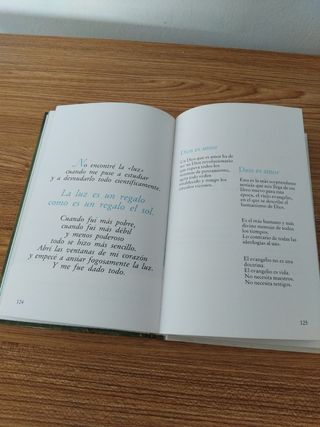 No encontré la «luz»
cuando me puse a estudiar
y a desnudarlo todo científicamente.
La luz es un regalo
como es un regalo el sol.
Cuando fui más pobre,
cuando fui más débil
y menos poderoso
todo se hizo más sencillo.
Abrí las ventanas de mi corazón
y empecé a ansiar fogosamente la luz.
Y me fue dado todo.
124
Dios es amor
Un Dios que es amor ha de
ser un Dios revolucionario
en todos los
de pensamiento,
orden
y rompe los
Dios es amor
Esta es la más sorprendente
noticia que nos llega de un
libro nuevo para esta
época, el evangelio,
en el que se describe el
humanismo de Dios.
Es el más humano y más
divino mensaje de todos
los tiempos.
Lo contrario de todas las
ideologías al uso.
El evangelio no es una
doctrina.
El evangelio es vida.
No necesita maestros.
No necesita testigos.
125